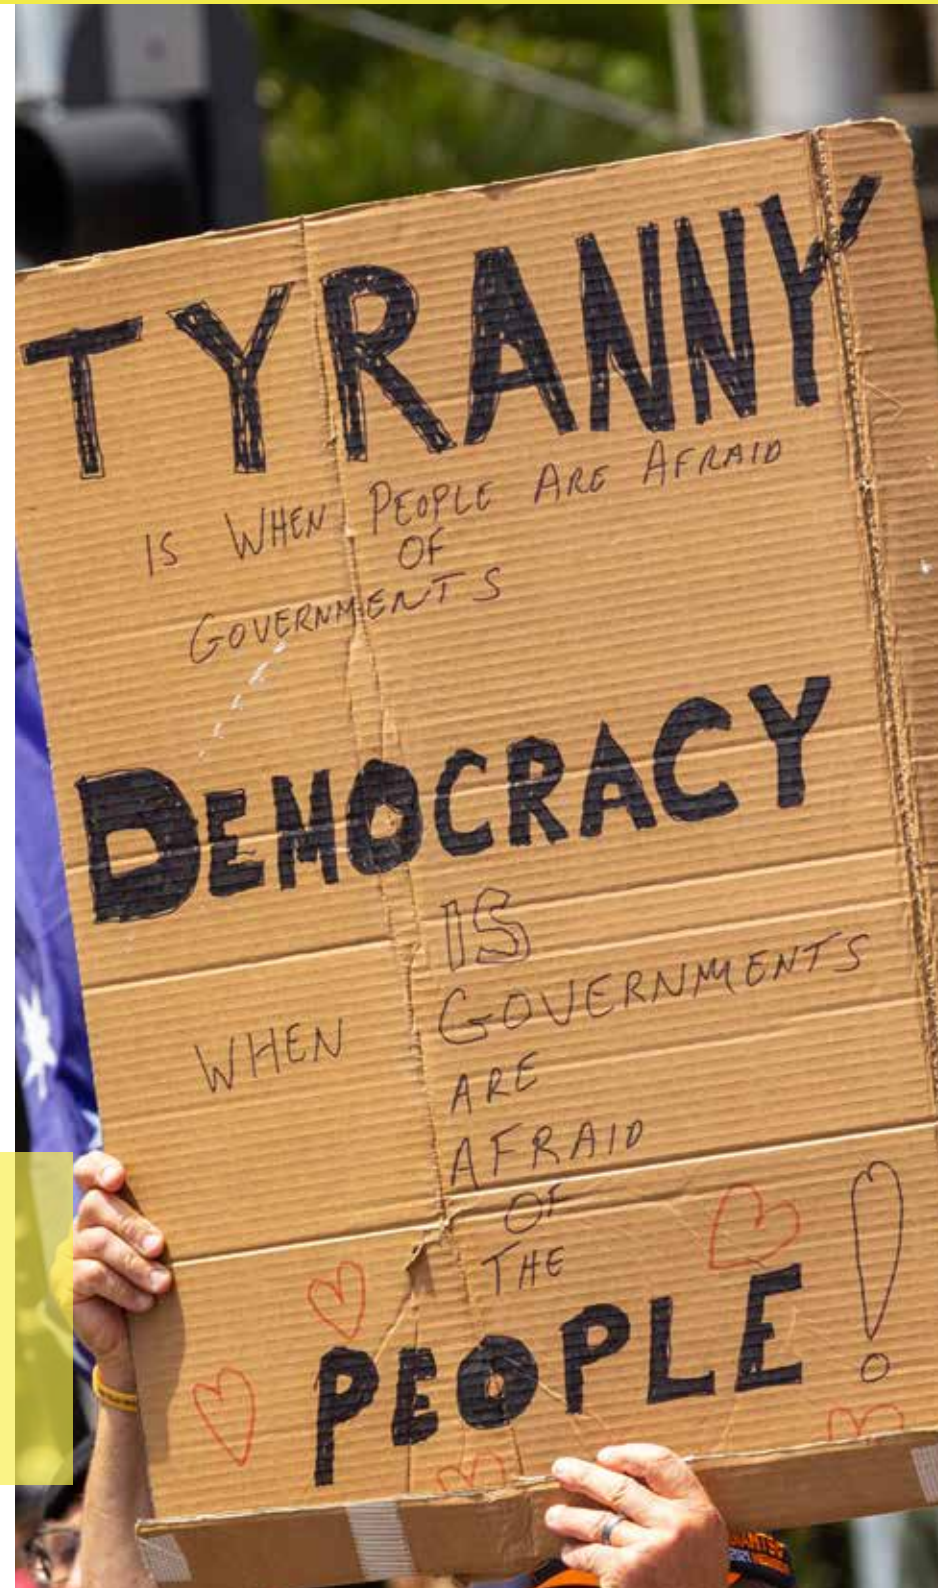 TYRANNY
IS WHEN PEOPLE ARE AFRAID
OF
GOVERNMENTS
DEMOCRACY
IS
WHEN GOVERNMENTS
ARE
AFRAID
OF
THE
PEOPLE!